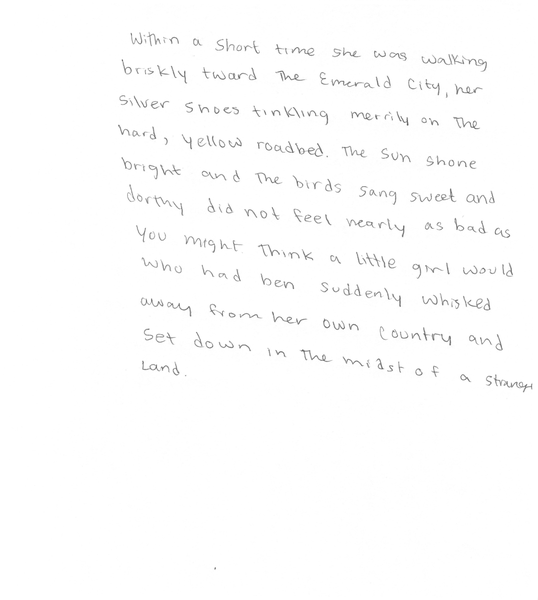 Within a short time she was walking
briskly tward The Emerald City, her
silver shoes tinkling merrily on The
hard, yellow roadbed. The sun shone
bright and The birds sang sweet and
dorthy did not feel nearly as bad as
you might Think a little girl would
who had ben suddenly whisked
away from her own country and
set down in The midst of a strange
Land.